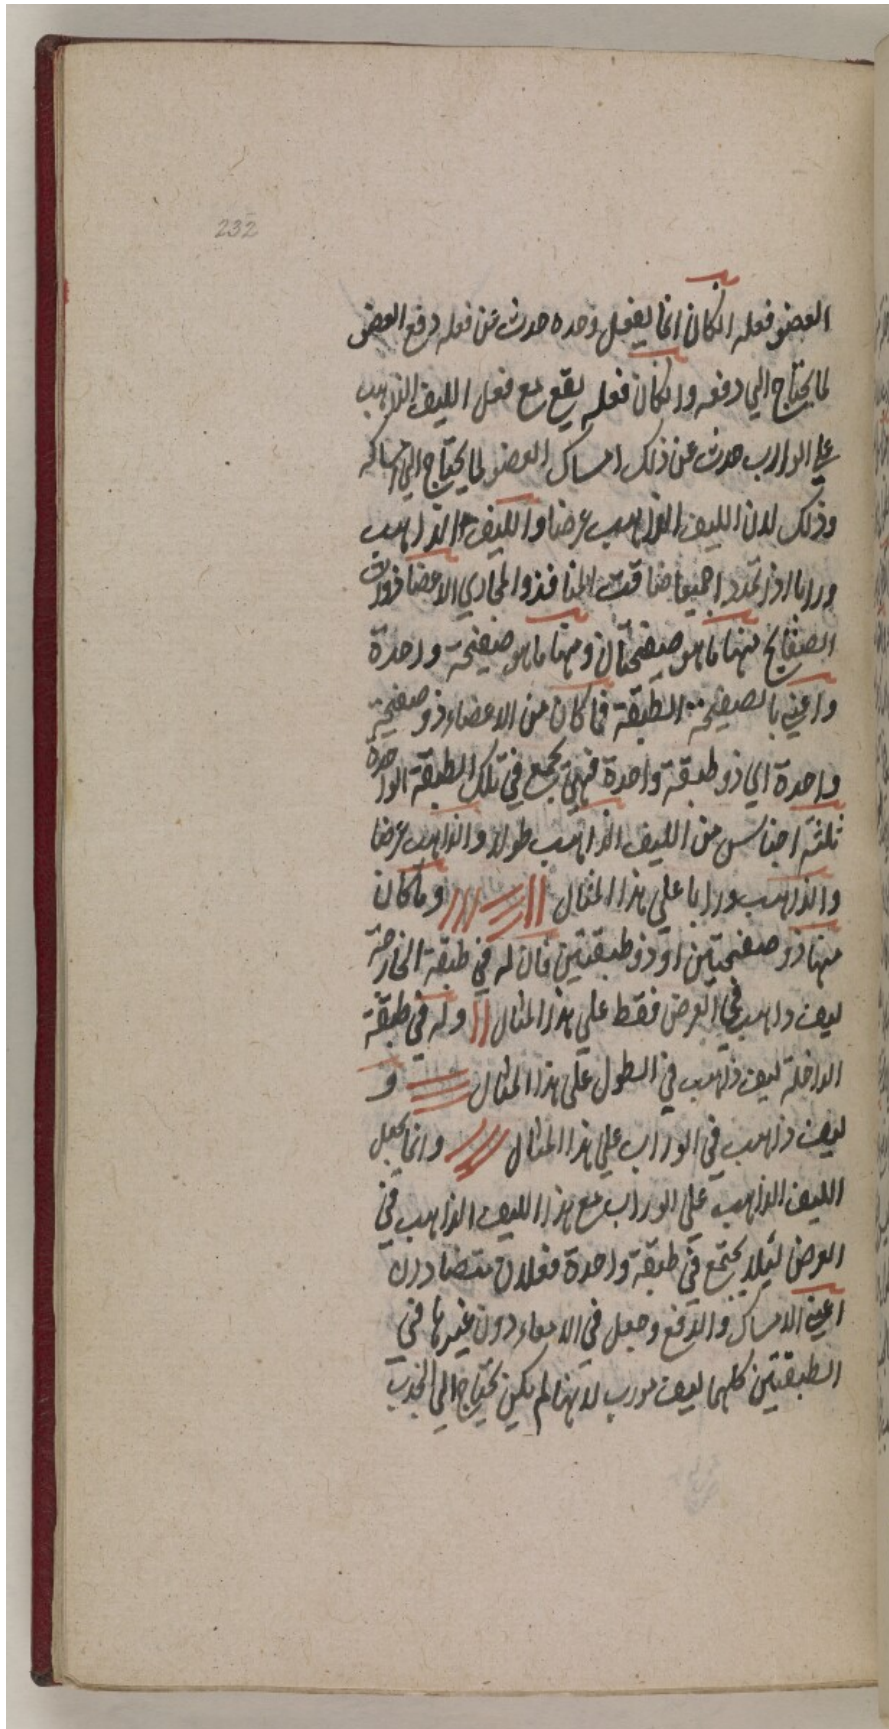 232
العضو فعله انكان انما يفعل وحده حدث عن فعله دفع العضو
لما يحتاج الي دفعه وانكان فعله يقع مع فعل الليف الذاهب
علي الوراب حدث عن ذلك امساك العضو لما يحتاج الي امساكه
وذلك لان الليف الذاهب عرضا والليف الذاهب
ورابا اذا تمدد اجميعا ضاقت المنافذ والمجاري الاعضا ذوات
الصفايح منها ما هو صفيحتان ومنها ما هو صفيحة واحدة
واعني بالصفيحة الطبقة فما كان من الاعضاء ذو صفيحة
واحدة اي ذو طبقة واحدة فهي يجمع في تلك الطبقة الواحدة
ثلثة اجناس من الليف الذاهب طولا والذاهب عرضا
والذاهب ورابا علي هذا المثال وما كان
منها ذو صفيحتين او ذو طبقتين فان له في طبقة الخارجة
ليف ذاهب في العرض فقط علي هذا المثال وله في طبقة
الداخلة ليف ذاهب في الطول علي هذا المثال و
ليف ذاهب في الوراب علي هذا المثال وانما يجعل
الليف الذاهب علي الوراب مع هذا الليف الذاهب في
العرض ليلا يجتمع في طبقة واحدة فعلان متضادان
اعني الامساك والدفع وجعل في الامعاء دون غيرها في
الطبقتين كلهما ليف مورب لانها لم يكن يحتاج الي الجذب